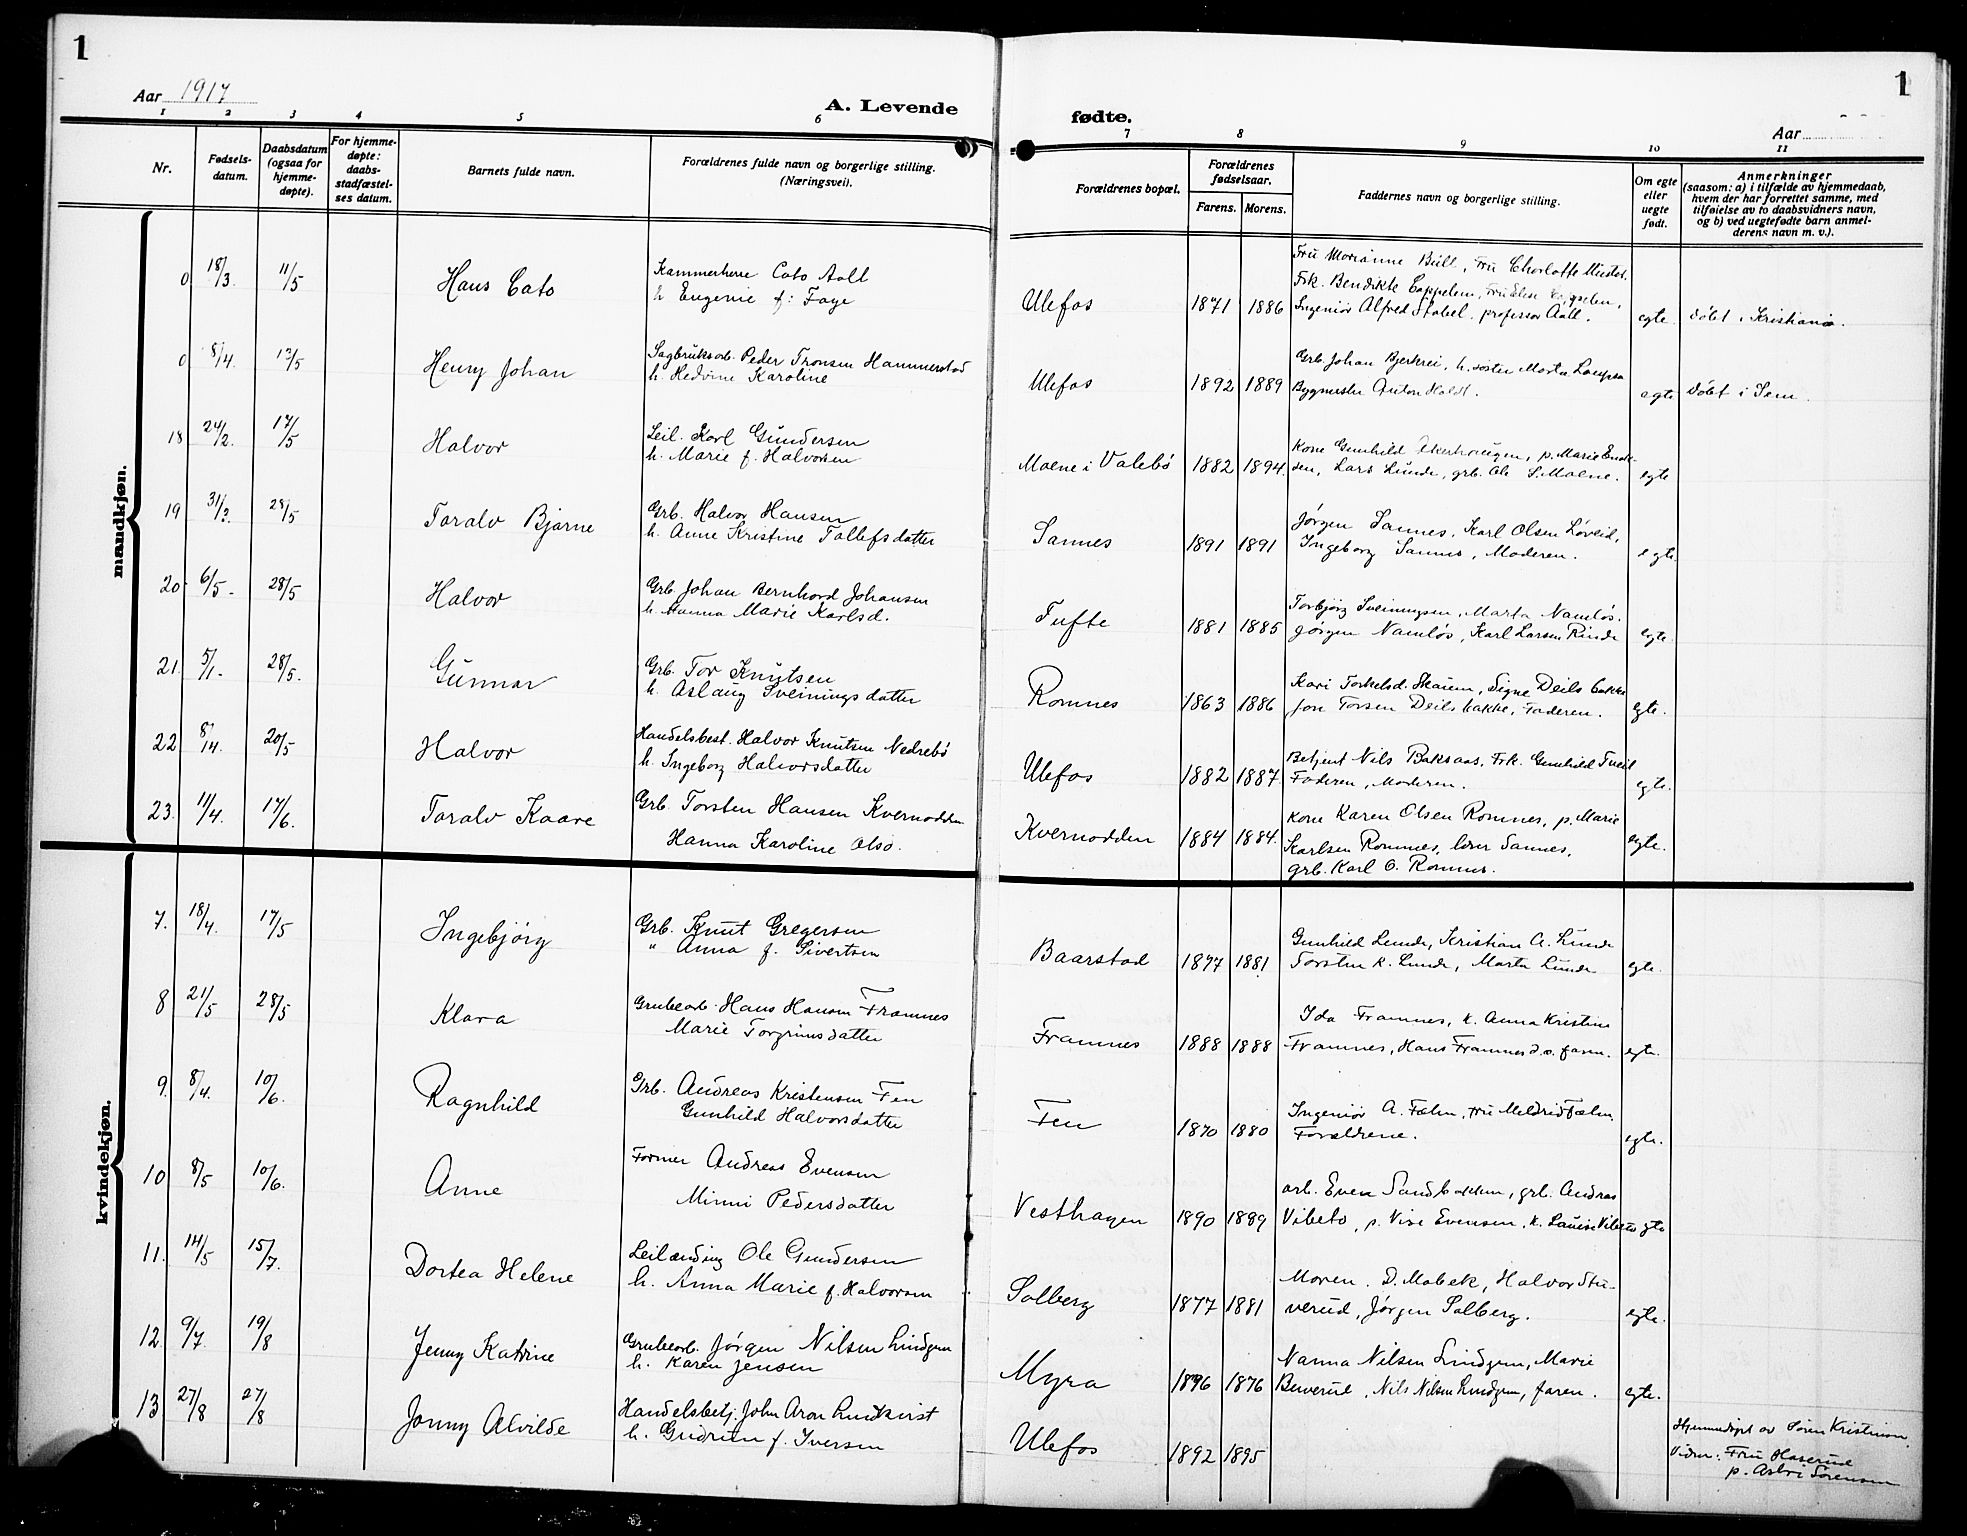 1
1
Aar 1917
A. Levende
fødte.
Aar
1 2 3 4 5 6 7 8 9 10 11
Nr.
Fødsels-
datum.
Daabsdatum
(ogsaa for
hjemme-
døpte).
For hjemme-
døpte:
daabs-
stadfæstel-
ses datum.
Barnets fulde navn.
Forældrenes fulde navn og borgerlige stilling.
(Næringsvei).
Forældrenes bopæl.
Forældrenes
fødselsaar.
Farens. Morens.
Faddernes navn og borgerlige stilling.
Om egte
eller
uegte
født.
Anmerkninger
(saasom: a) i tilfælde av hjemmedaab,
hvem der har forrettet samme, med
tilføielse av to daabsvidners navn,
og b) ved uegtefødte barn anmel-
derens navn m. v.).
mandkjøn.
0 18/3 11/5 Hans Cato
Kammerherre Cato Aall
h Eugenie f: Faye
Ulefos 1871 1886
Fru Marianne Bull, Fru Charlotte Mustad.
Frk. Bendikte Cappelen, Fru Else
Ingeniør Alfred Stabel. professor Aall.
egte. Døbt i Kristiania.
0 8/4. 13/5 Henry Johan
Sagbruksarb. Peder Tronsen Hammerstad
h. Hedvine Karoline
Ulefos 1892 1889
Grb. Johan Bjerkrei, h. søster Marta
Bygmester Anton Holdt.
egte Døbt i Sem.
18 24/2. 17/5 Halvor
Leil. Karl Gundersen
h. Marie f. Halvorsen
Moene i Valebø 1882 1894.
Kone Gunhild Akerhaugen, p. Marie
Lars Lunde, grb. Ole S. Moene.
egte
19 31/3. 28/5 Toralv Bjarne
Grb. Halvor Hansen
h. Anne Kristine Tollefsdatter
Sannes 1891 1891
Jørgen Sannes, Karl Olsen Løveid,
Ingeborg Sannes, Moderen.
egte
20 6/5- 28/5 Halvor
Grb. Johan Bernhard Johansen
h. Hanna Marie Karlsd.
Tufte 1881 1885
Torbjørg Sveinungsen, Marta Namløs.
Jørgen Namløs, Karl Larsen Rinde
egte.
21. 5/1- 28/5. Gunnar
Grb. Tor Knutsen
h. Aslaug Sveiningsdatter
Romnes 1863 1886
Kari Torkelsd. Skauen, Signe Deilsbakke
Jon Torsen Deilsbakke, Faderen.
egte.
22 8/14. 20/5 Halvor
Handelsbest. Halvor Knutsen Nedrebø
h. Ingeborg Halvorsdatter
Ulefos 1882 1887.
Betjent Nils Baksaas, Frk. Gunhild
Faderen, Moderen.
egte.
23. 11/4. 17/6. Toralv Kaare
Grb. Torsten Hansen Kvernodden
Hanna Karoline Olsd.
Kvernodden 1884 1884.
Kone Karen Olsen Romnes, p. Marie
Karlsen Romnes, Sannes,
grb. Karl O. Romnes.
egte.
kvindekjøn.
7. 18/4. 17/5 Ingebjørg
Grb. Knut Gregersen
" Anna f. Sivertsen
Baarstad 1897 1881
Gunhild Lunde, Kristian A. Lunde
Torsten K. Lunde, Marta Lunde
egte.
8 21/5 28/5 Klara
Grubearb. Hans Hansen Framnes
Marie Torgrimsdatter
Framnes 1888 1888
Ida Framnes, k. Anna Kristine
Framnes, Hans Framnes d.e. faren.
egte.
9. 8/4. 10/6. Ragnhild
Grb. Andreas Kristensen Fen
Gunhild Halvorsdatter
Fen 1870 1880
Ingeniør A. Fæhn, Fru Meldrid Fæhn
Forældrene.
egte.
10 8/5 10/6. Anne
Former Andreas Evensen
Minni Pedersdatter
Vesthagen 1890 1889
arb. Even Sandbakken, grb. Andreas
Vibeto, p. Evensen, k. Lauise Vibeto
egte
11. 14/5 15/7. Dortea Helene
Leilænding Ole Gundersen
h. Anna Marie f. Halvorsen
Solberg 1877 1881
Moren. D. Mobek, Halvor Stu-
verud, Jørgen Solberg.
egte.
12 9/7. 19/8 Jenny Katrine
Grubearb. Jørgen Nilsen Lindgren
h. Karen Jensen
Myra 1896 1876
Nanna Nilsen Lindgren, Marie
Beverud, Nils Nilsen Lindgren, faren.
egte.
13 27/8 27/8 Jonny Alvilde
Handelsbetj. John Aron Lundkvist
h. Gudrun f. Iversen
Ulefos 1892 1895
Hjemmedøpt av Søren Kristensen.
Vidner: Fru Haserud
p. Astri Sørensen